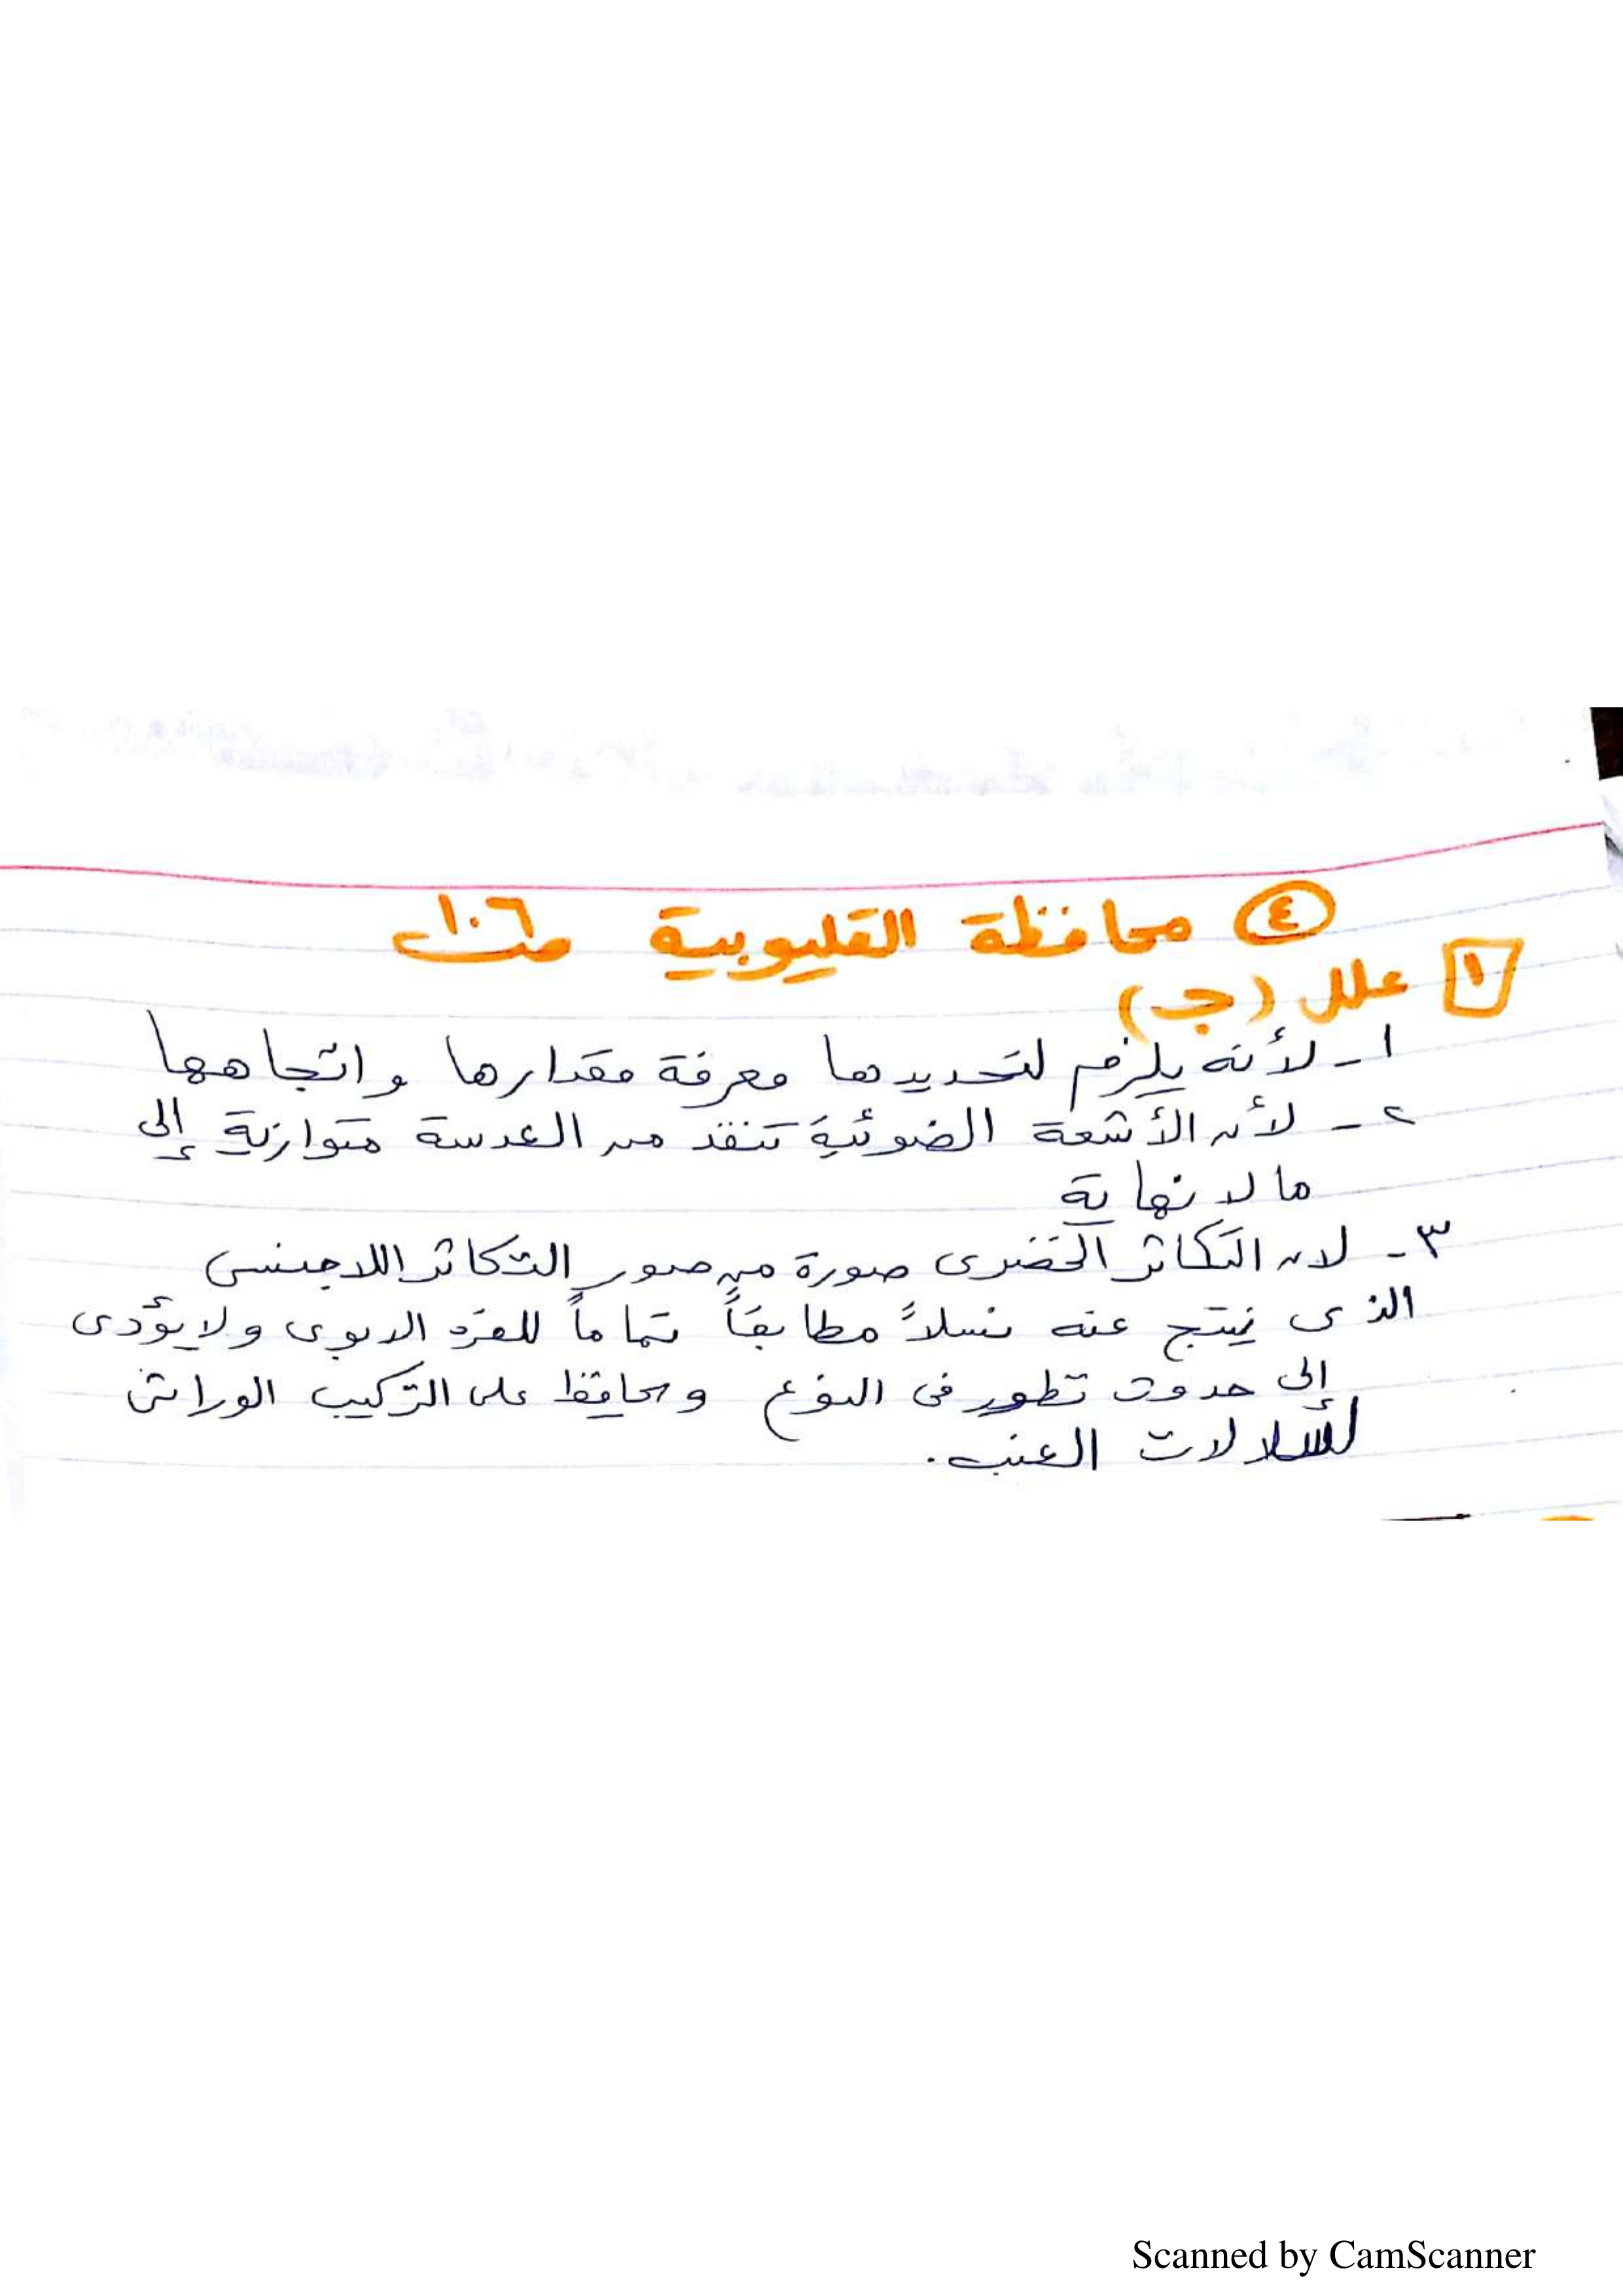 ٤ محافظة القليوبية صـ ١٠٦
١ علل (جـ)
١ - لأنه يلزم لتحديدها معرفة مقدارها واتجاهها
٢ - لأن الأشعة الضوئية تنفذ من العدسة متوازية إلى
ما لا نهاية
٣ - لان التكاثر الخضرى صورة من صور التكاثر اللاجنسى
الذى ينتج عنه نسلاً مطابقاً تماماً للفرد الابوى ولا يؤدى
إلى حدوث تطور فى النوع ويحافظ على التركيب الوراثى
لسلالات العنب.
Scanned by CamScanner